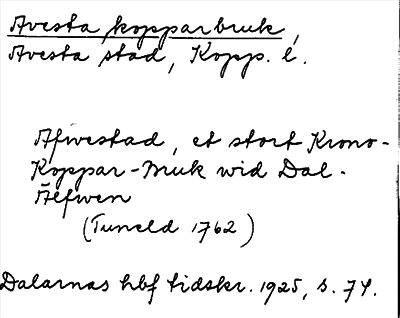 Avesta kopparbruk,
Avesta stad, Kopp. l.
Afwestad, et stort Krono-
Koppar-Bruk wid Dal-
Älfwen
(Tuneld 1762)
Dalarnas hbf tidskr. 1925, s. 74.